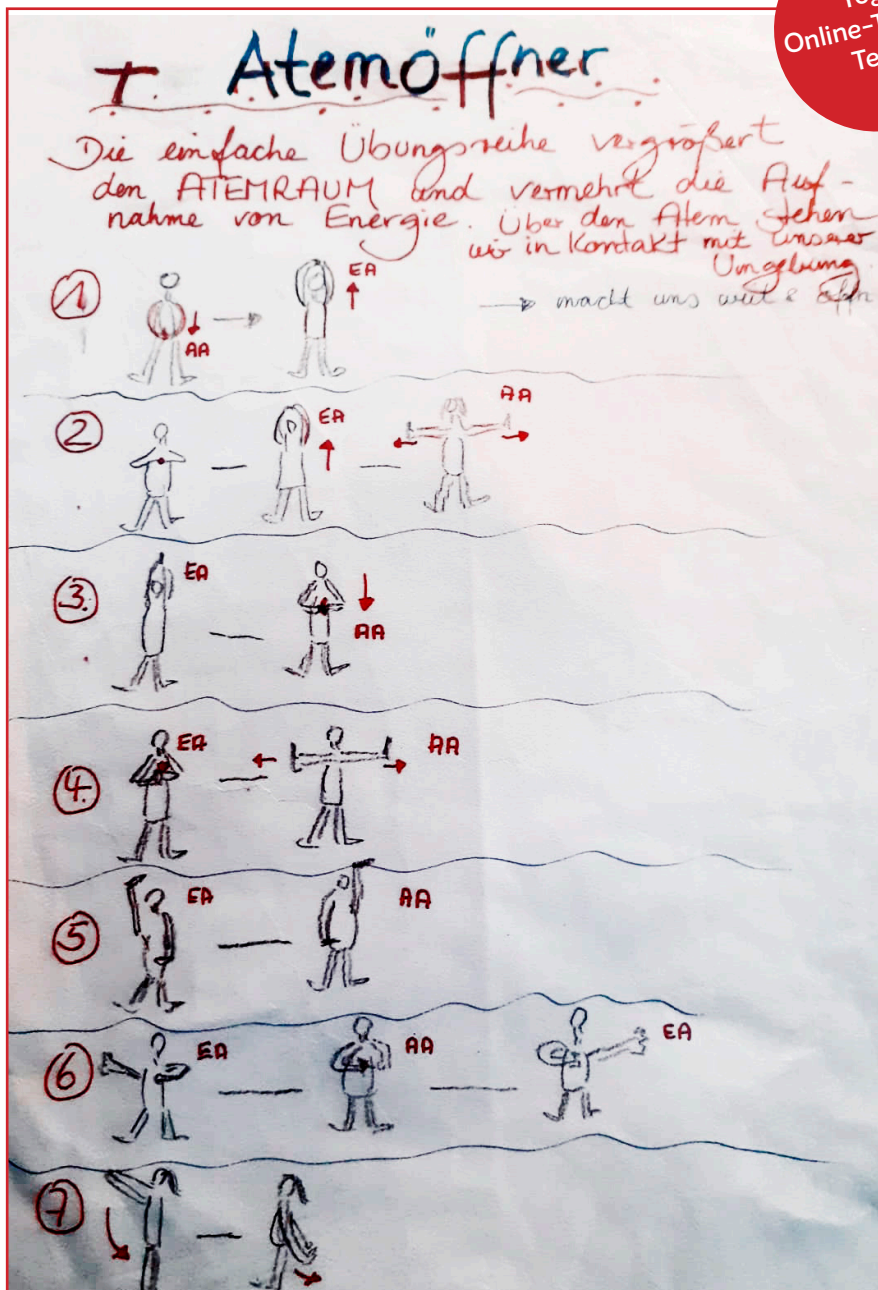 Online-
Te
+ Atemöffner
Die einfache Übungsreihe vergrößert
den ATEMRAUM und vermehrt die Auf-
nahme von Energie. Über den Atem stehen
wir in Kontakt mit unserer
Umgebung.
→ macht uns weit &
1 AA → EA
2 EA AA
3. EA AA
4. EA AA
5 EA AA
6 EA AA EA
7